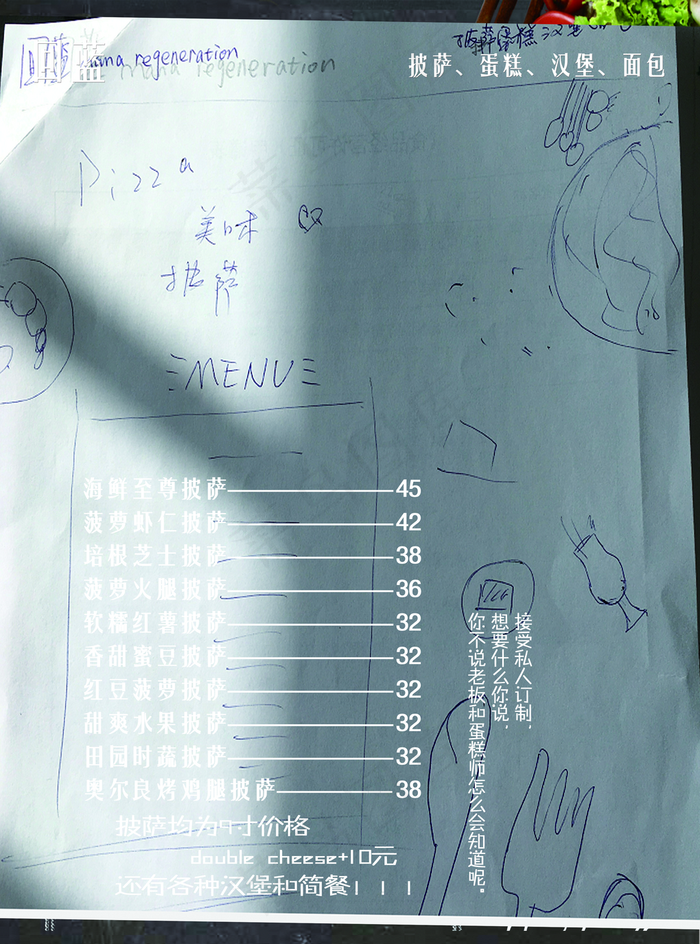 mana regeneration
mana regeneration
披萨、蛋糕、汉堡、面包
Pizza
美味
披萨
MENU
海鲜至尊披萨——45
菠萝虾仁披萨——42
培根芝士披萨——38
菠萝火腿披萨——36
软糯红薯披萨——32
香甜蜜豆披萨——32
红豆菠萝披萨——32
甜爽水果披萨——32
田园时蔬披萨——32
奥尔良烤鸡腿披萨——38
接受私人订制，
想要什么你说，
你不说老板和蛋糕师怎么会知道呢。
披萨均为9寸价格
double cheese+10元
还有各种汉堡和简餐！！！